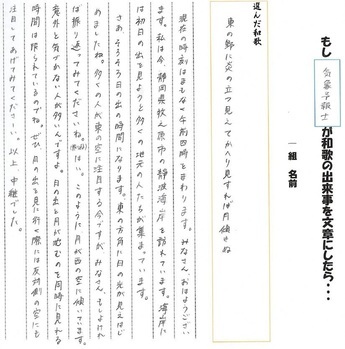 もし気象予報士が和歌の出来事を文章にしたら・・・
一組 名前
選んだ和歌
東の野に炎の立つ見えてかへり見すれば月傾きぬ
現在の時刻はまもなく午前四時を回ります。みなさん、おはようござい
ます。私は今、静岡県牧之原市の静波海岸を訪れています。海岸に
は初日の出を見ようと多くの地元の人たちが集まっています。
さあ、そろそろ日の出の時間になります。東の方角に日の光が見えはじ
めましたね。多くの人が東の空に注目する今ですが、みなさん、もしよけれ
ば振り返ってみてくださいね。はい。このように月が西の空に傾いています。
意外と気づかない人が多いんですよ。日の出と月が沈むのを同時に見れる
時間は限られているのでね。ぜひ、日の出を見に行く際には反対側の空にも
注目してあげてみてください。以上、中継でした。